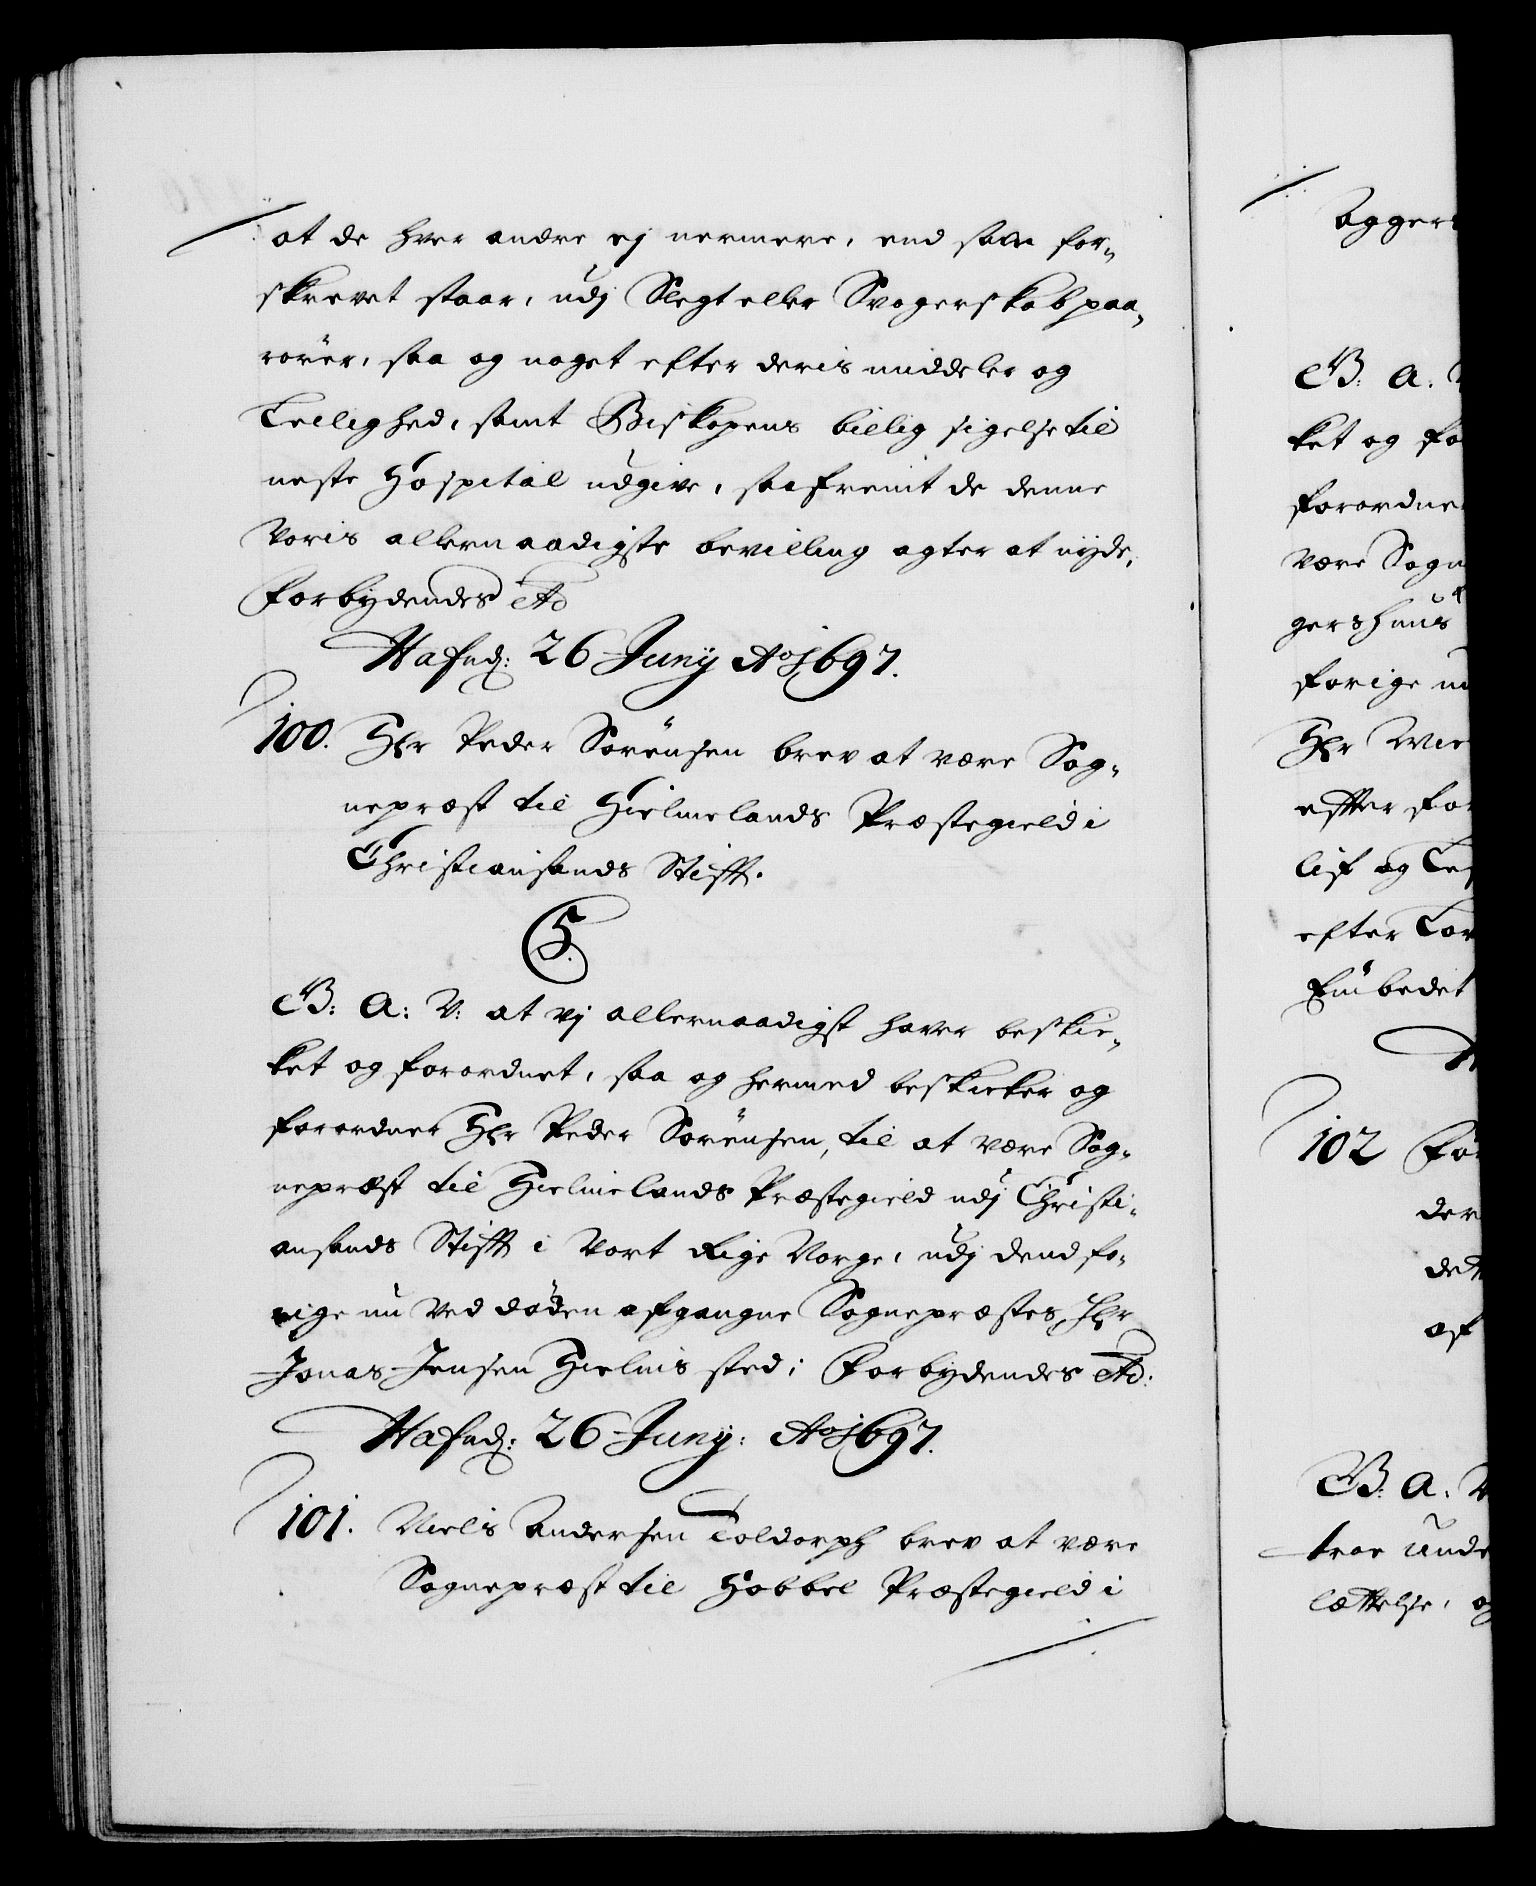 at de hver andre ej nermere, end som for-
skrevet staar, udj Slegt eller Svogerskab paa-
rörer, saa og noget efter deris middeler og
Leilighed, samt Biskopens billig sigelse til
neste Hospital udgive, saafremt de denne
Voris allernaadigste bevilling agter at nyde,
Forbydendes etc
Hafnæ: 26 Junij Ao 1697.
100. Hr Peder Sörensen brev at være Sog-
nepræst til Hielmelands Præstegield i
Christiansands Stifft.
C5.
G: A: V: at vj allernaadigst haver beskic-
ket og forordnet, saa og hermed beskicker og
forordner Hr Peder Sörensen, til at være Sog-
nepræst til Hielmelands Præstegield udj Christi-
ansands Stifft i Vort Rige Norge, udj dend fo-
rige nu ved döden afgangne Sognepræstes, Hr
Jonas Jensen Hielms sted; Forbydendes etc:
Hafnæ: 26 Junij: Ao 1697.
101. Niels Andersen Toldorph brev at være
Sognepræst til Hobbel Præstegield i
Agger
G: A: V
ket og fo
forordne
være Sogn
gershuus
forige nu
Hr
effter for
lif og
efter
Embedet
102 For
der
dett
af
G: A: V
troe unde
lættelse, og